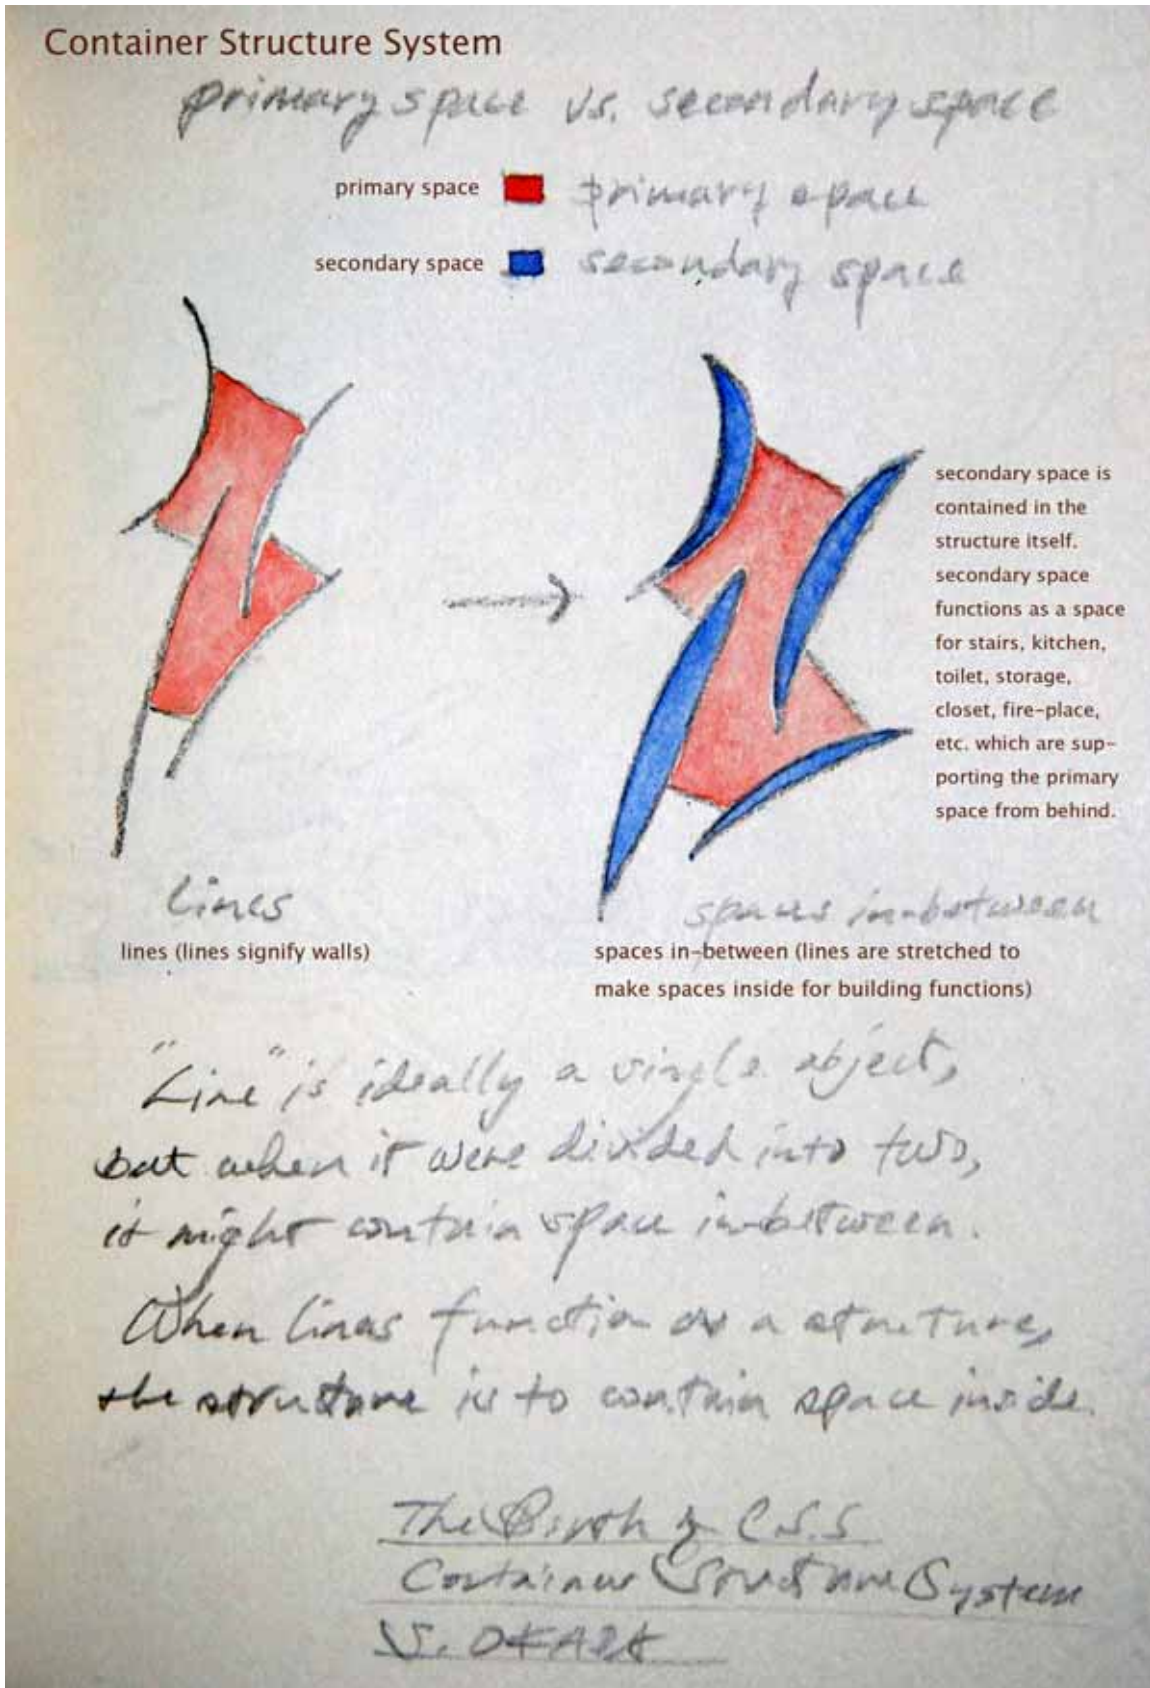 Container Structure System
primary space vs. secondary space
primary space
primary space
secondary space
secondary space
secondary space is
contained in the
structure itself.
secondary space
functions as a space
for stairs, kitchen,
toilet, storage,
closet, fire-place,
etc. which are sup-
porting the primary
space from behind.
Lines
lines (lines signify walls)
spaces in-between
spaces in-between (lines are stretched to
make spaces inside for building functions)
"Line" is ideally a single object,
but when it were divided into two,
it might contain space in-between.
When lines function as a structure,
the structure is to contain space inside.
The Birth of C.S.S
Container Structure System
S. OKADA